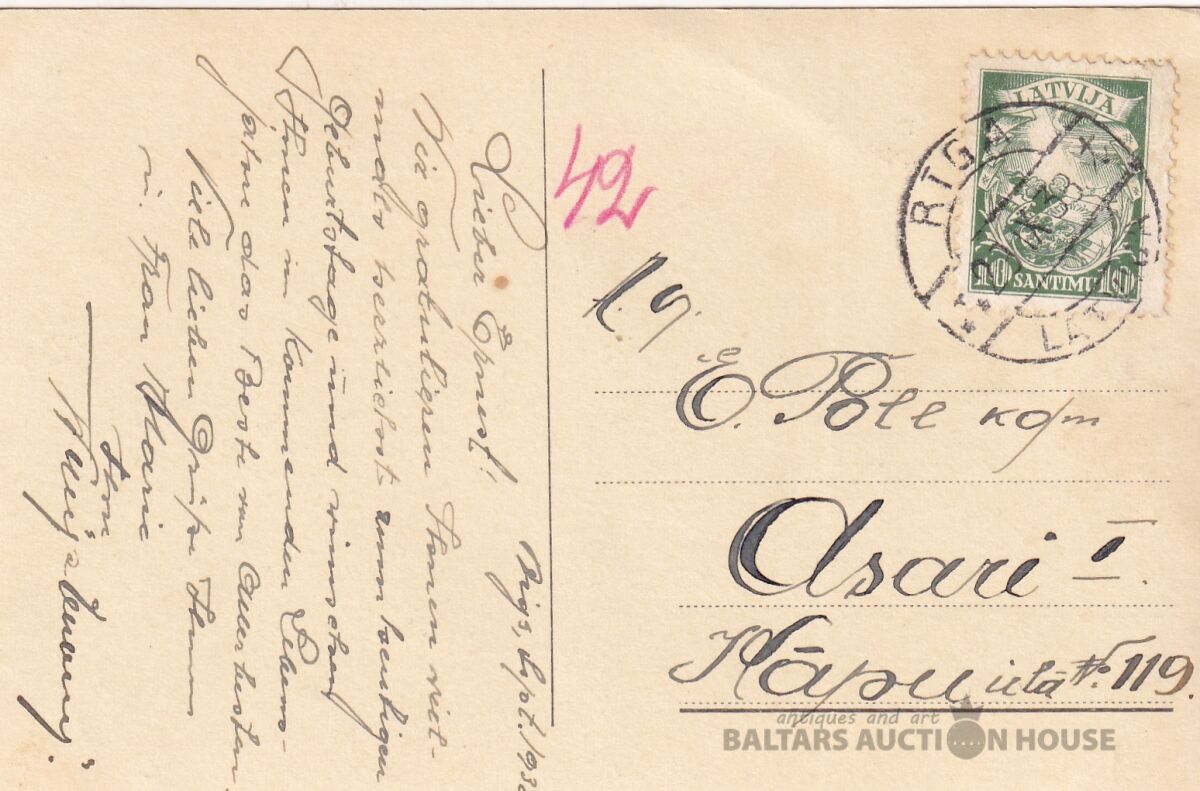 Riga, Sept. 193
Lieber Ernst!
Wir gratulieren Ihnen viel-
mals herzlichst zum heutigen
Geburtstage und wünschen
Ihnen im kommenden Lebens-
jahre das Beste vom Allerbesten.
Viele lieben Grüße Ihnen
u. Frau Marie
Ihre
42
LATVIJA
10 SANTIMU 10
RIGA
LATVIJA
E. Pole
Asari I.
Kāpu ielā № 119.
antiques and art
BALTARS AUCTION HOUSE